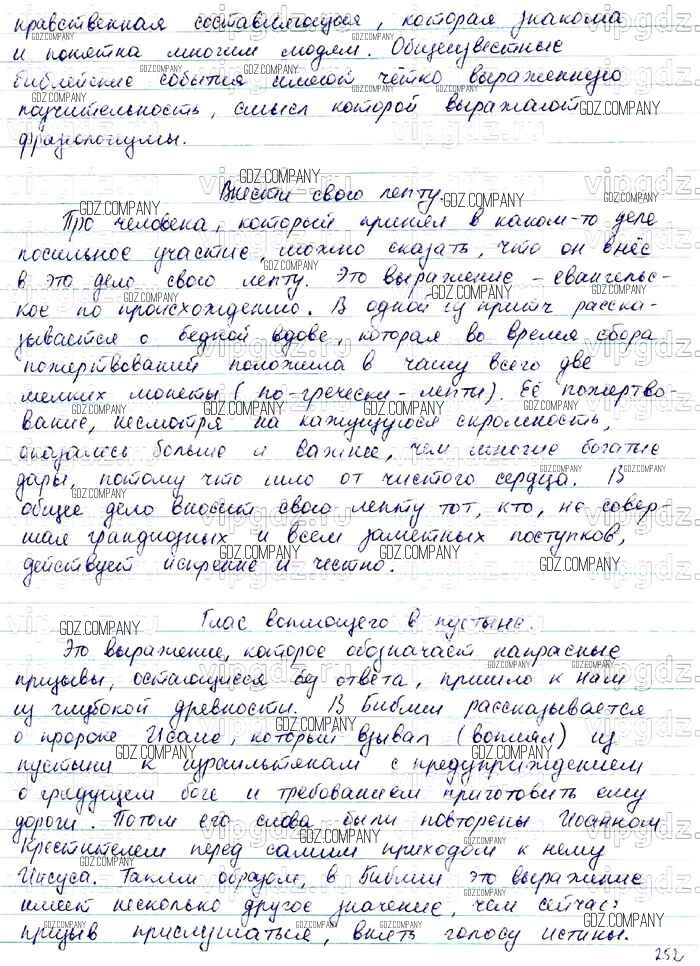 нравственная составляющая, которая знакома
и понятна многим людям. Общеизвестные
библейские события имеют чётко выраженную
поучительность, смысл которой выражают
фразеологизмы.
Внести свою лепту.
Про человека, который принял в каком-то деле
посильное участие, можно сказать, что он внёс
в это дело свою лепту. Это выражение – евангельс-
кое по происхождению. В одной из притч расска-
зывается о бедной вдове, которая во время сбора
пожертвований положила в чашу всего две
мелких монеты (по-гречески – лепты). Её пожертво-
вание, несмотря на кажущуюся скромность,
оказалось больше и важнее, чем многие богатые
дары, потому что шло от чистого сердца. В
общее дело вносит свою лепту тот, кто, не совер-
шая грандиозных и всем заметных поступков,
действует искренне и честно.
Глас вопиющего в пустыне.
Это выражение, которое обозначает напрасные
призывы, остающиеся без ответа, пришло к нам
из глубокой древности. В Библии рассказывается
о пророке Исаие, который взывал (вопиял) из
пустыни к израильтянам с предупреждением
о грядущем боге и требованием приготовить ему
дороги. Потом его слова были повторены Иоанном
Крестителем перед самым приходом к нему
Иисуса. Таким образом, в Библии это выражение
имеет несколько другое значение, чем сейчас:
призыв прислушаться, внять голосу истины.
252